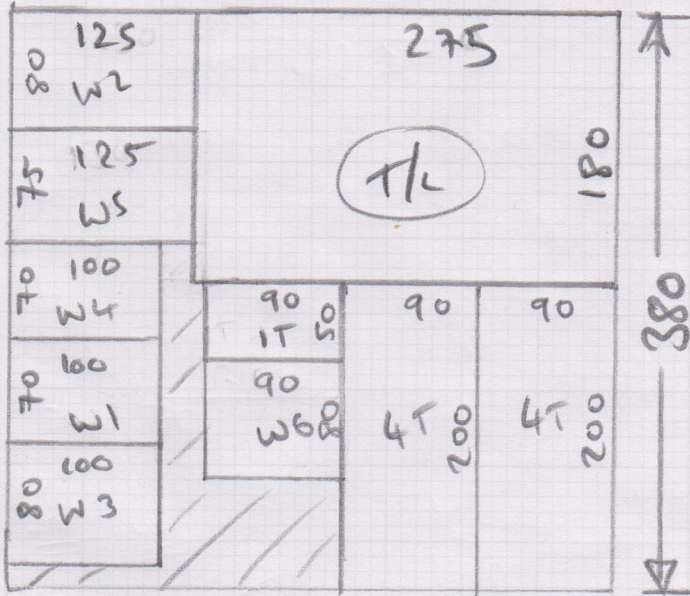 80 125
W2
275
T/L
180
75 125
W5
70 100
W4
70 100
W1
80 100
W3
90
1T 50
90
W6 80
90
4T 200
90
4T 200
380